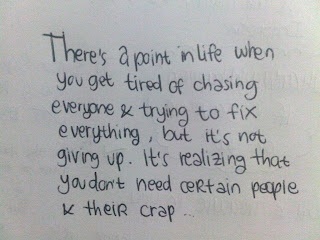 There's a point in life when
you get tired of chasing
everyone & trying to fix
everything, but it's not
giving up. It's realizing that
you don't need certain people
& their crap...